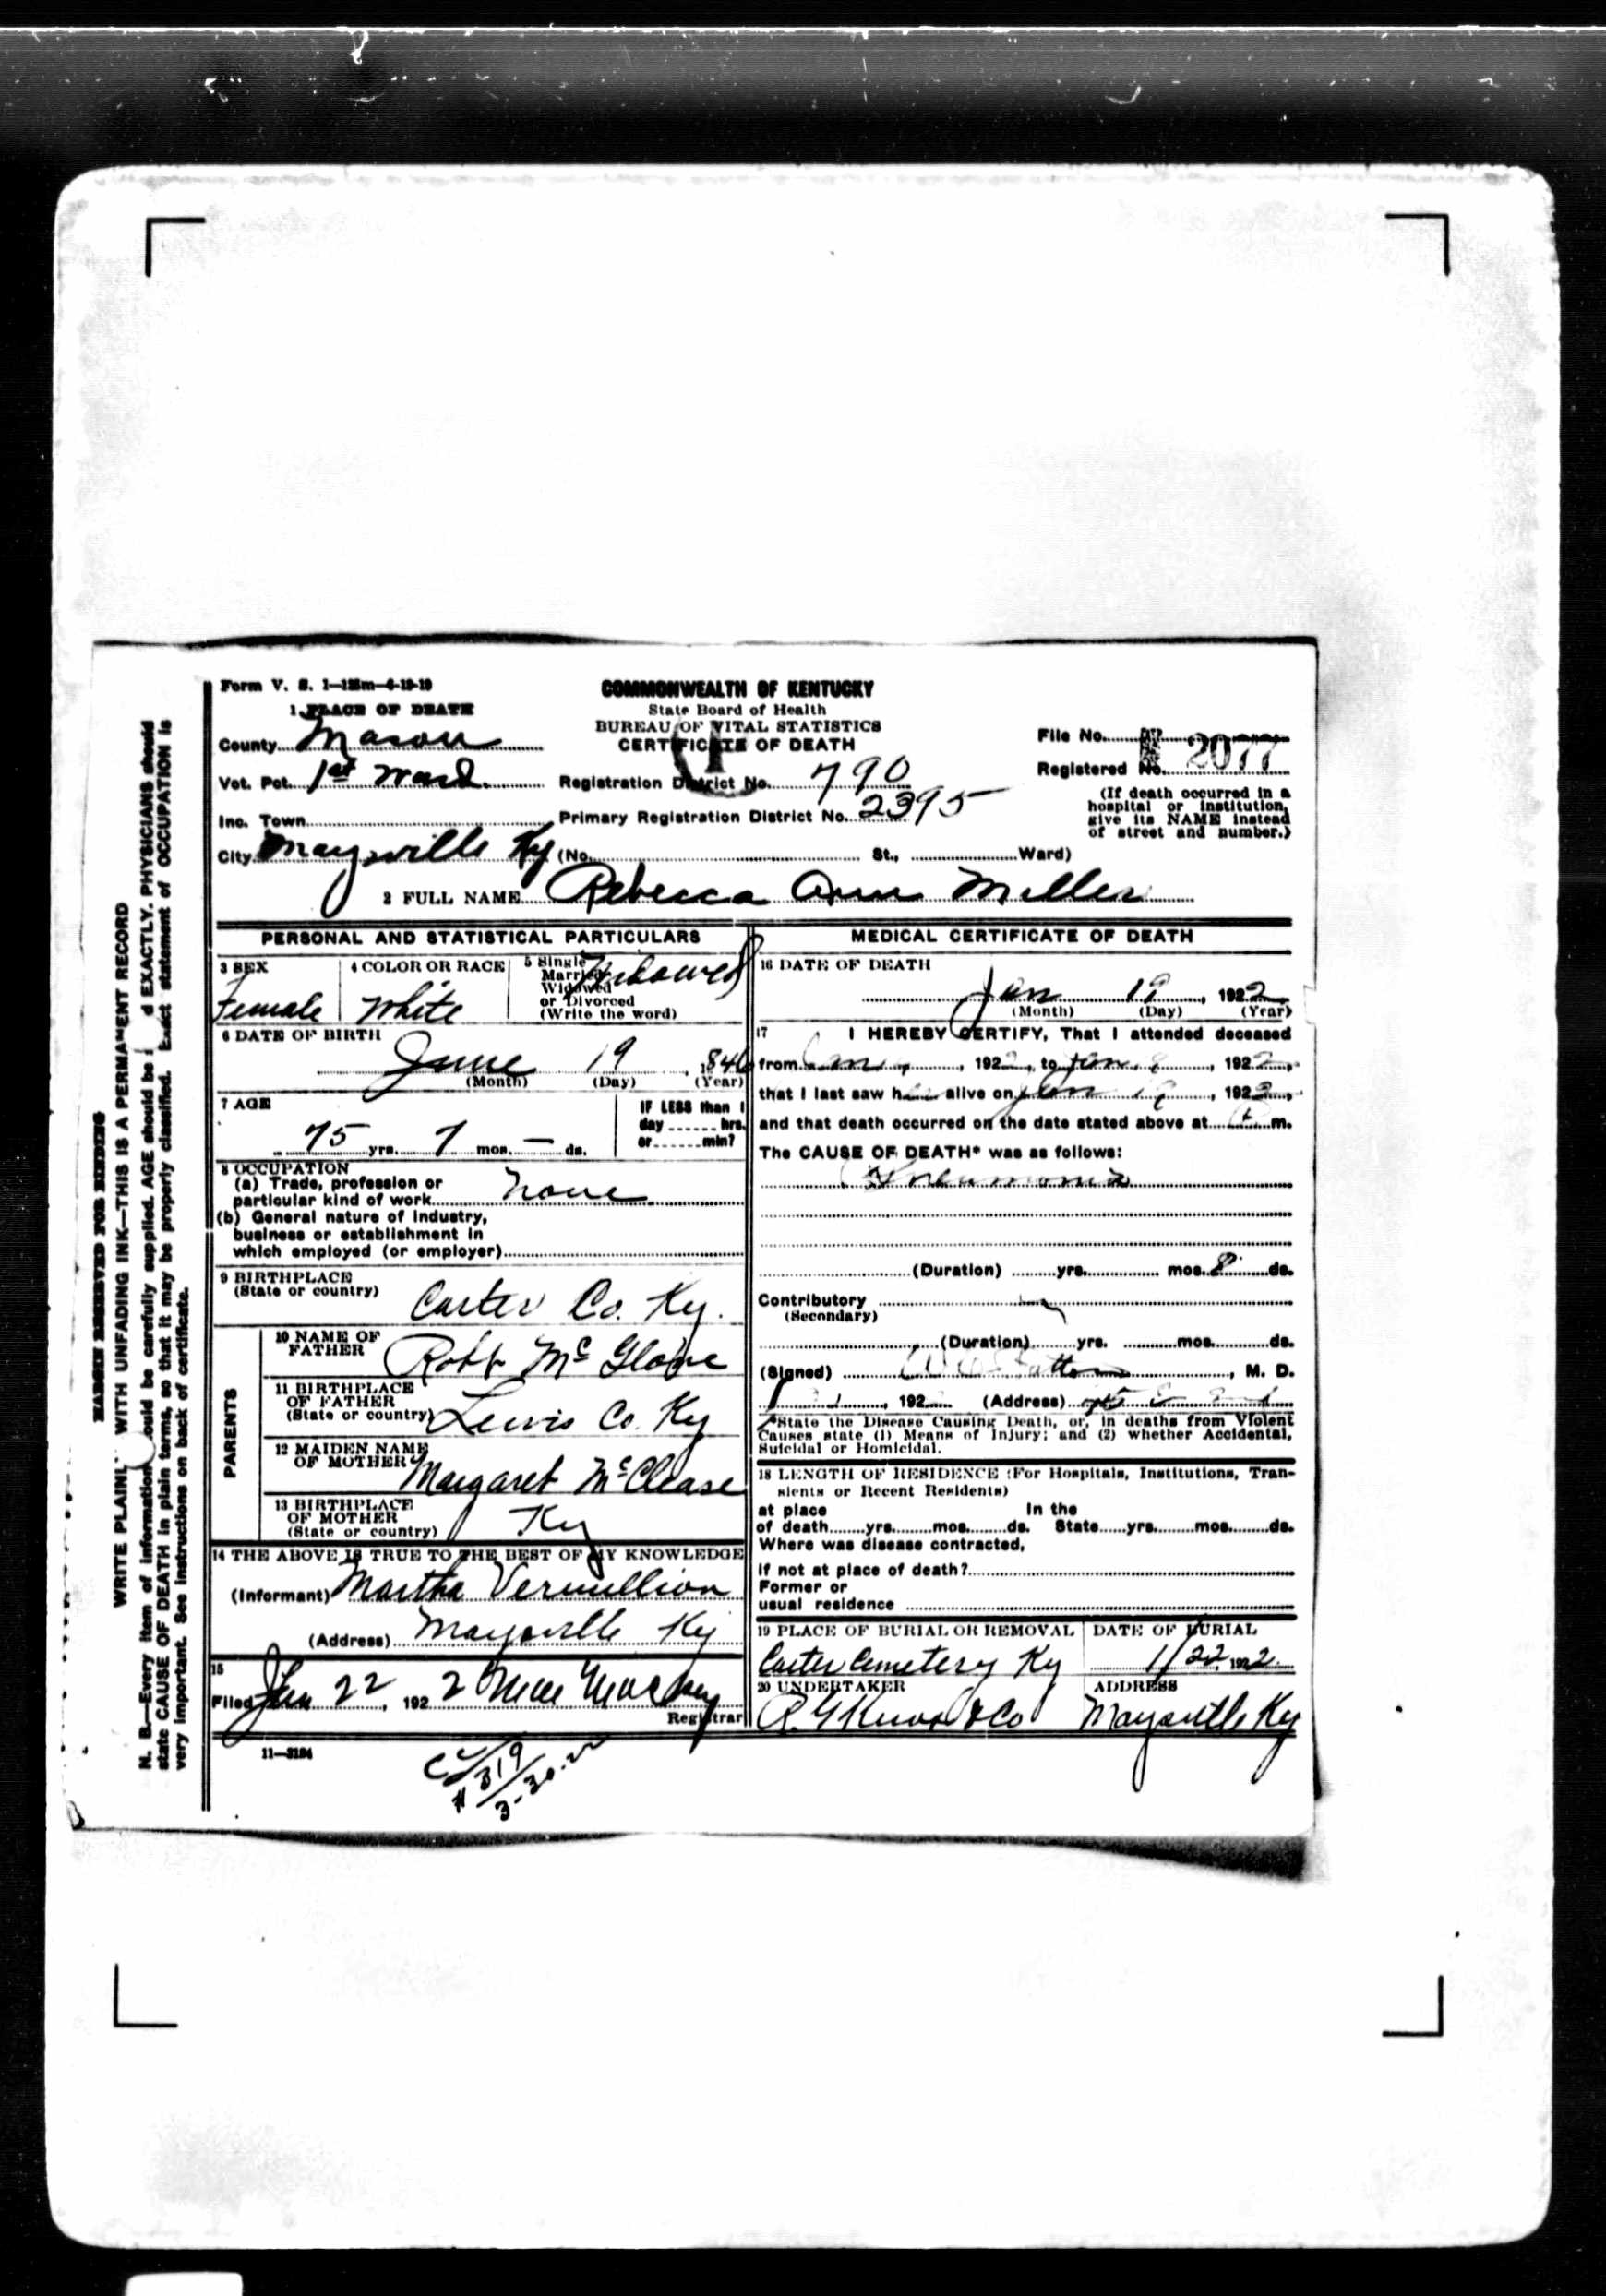 Form V. S. 1—125m—4-19-19
COMMONWEALTH OF KENTUCKY
State Board of Health
BUREAU OF VITAL STATISTICS
CERTIFICATE OF DEATH
1 PLACE OF DEATH
County Mason
Vot. Pct. 1st Ward
Inc. Town
City Maysville Ky (No. St., Ward)
Registration District No. 790
Primary Registration District No. 2395
File No. 2077
Registered No.
(If death occurred in a
hospital or institution,
give its NAME instead
of street and number.)
2 FULL NAME Rebecca Ann Miller
PERSONAL AND STATISTICAL PARTICULARS
3 SEX
Female
4 COLOR OR RACE
White
5 Single
Married
Widowed
or Divorced
(Write the word)
Widowed
6 DATE OF BIRTH
June 19, 1846
(Month) (Day) (Year)
7 AGE
75 yrs. 7 mos. — ds.
IF LESS than 1
day hrs.
or min?
8 OCCUPATION
(a) Trade, profession or
particular kind of work none
(b) General nature of industry,
business or establishment in
which employed (or employer)
9 BIRTHPLACE
(State or country)
Carter Co. Ky.
PARENTS
10 NAME OF
FATHER
Robt McGlone
11 BIRTHPLACE
OF FATHER
(State or country)
Lewis Co. Ky
12 MAIDEN NAME
OF MOTHER
Margaret McClease
13 BIRTHPLACE
OF MOTHER
(State or country)
Ky
14 THE ABOVE IS TRUE TO THE BEST OF MY KNOWLEDGE
(Informant) Martha Vermillion
(Address) Maysville Ky
15
Filed Jan 22, 1922
Registrar
11—3184
319
3-30-22
MEDICAL CERTIFICATE OF DEATH
16 DATE OF DEATH
Jan 19, 1922
(Month) (Day) (Year)
17 I HEREBY CERTIFY, That I attended deceased
from Jan , 1922, to Jan , 1922,
that I last saw her alive on Jan 19, 1922,
and that death occurred on the date stated above at m.
The CAUSE OF DEATH* was as follows:
Pneumonia
(Duration) yrs. mos. 8 ds.
Contributory
(Secondary)
(Duration) yrs. mos. ds.
(Signed) , M. D.
, 192 (Address)
*State the Disease Causing Death, or, in deaths from Violent
Causes state (1) Means of Injury; and (2) whether Accidental,
Suicidal or Homicidal.
18 LENGTH OF RESIDENCE (For Hospitals, Institutions, Tran-
sients or Recent Residents)
at place In the
of death yrs. mos. ds. State yrs. mos. ds.
Where was disease contracted,
if not at place of death?
Former or
usual residence
19 PLACE OF BURIAL OR REMOVAL
Carter Cemetery Ky
DATE OF BURIAL
1/22, 1922
20 UNDERTAKER
ADDRESS
Maysville Ky
MARGIN RESERVED FOR BINDING
WRITE PLAINL WITH UNFADING INK—THIS IS A PERMANENT RECORD
N. B.—Every item of information should be carefully supplied. AGE should be d EXACTLY. PHYSICIANS should
state CAUSE OF DEATH in plain terms, so that it may be properly classified. Exact statement of OCCUPATION is
very important. See instructions on back of certificate.